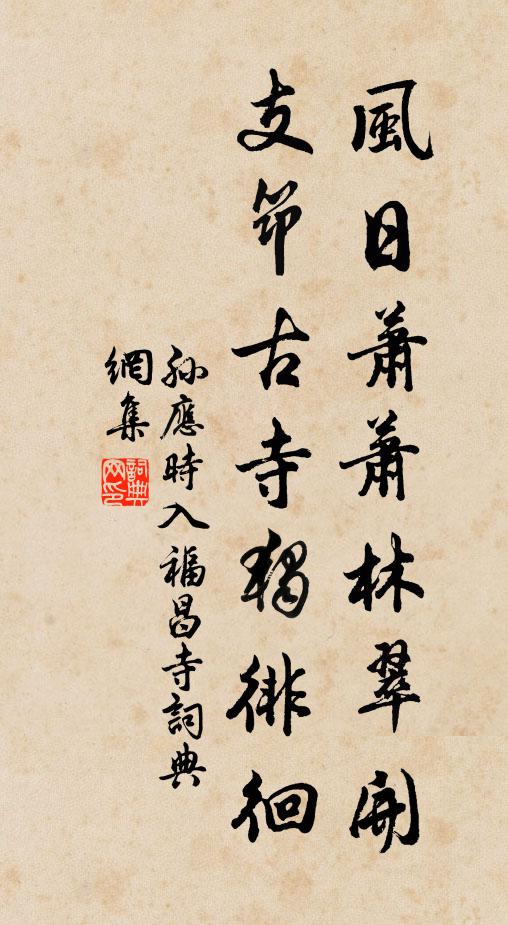 風日蕭蕭林翠開
支笻古寺獨徘徊
孫應時入福昌寺詞典
網集
詞典
网印